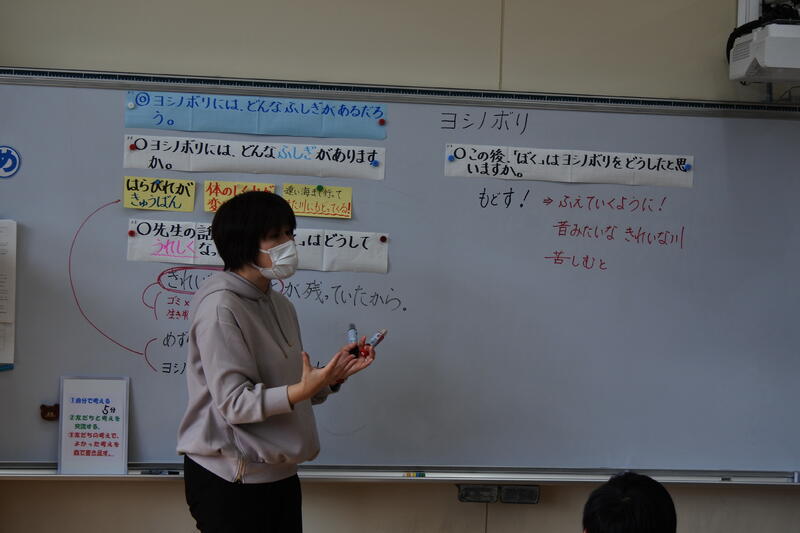 ◎ヨシノボリには、どんなふしぎがあるだろ
う。
○ヨシノボリには、どんなふしぎがあります
か。
はらびれが
きゅうばん
体の
変
遠い海まで行って
また川にもどってくる!
○先生の話
はどうして
うれしくな
きれい
が残っていたから。
ゴミ×
生き
めず
ヨシノ
①自分で考える
5分
②友だちと考えを
交流する。
③友だちの考えで、
よかった考えを
赤で書き足す。
め
ヨシノボリ
○この後、「ぼく」はヨシノボリをどうしたと思
いますか。
もどす! ⇒ふえていくように!
昔みたいな きれいな川
苦しむと